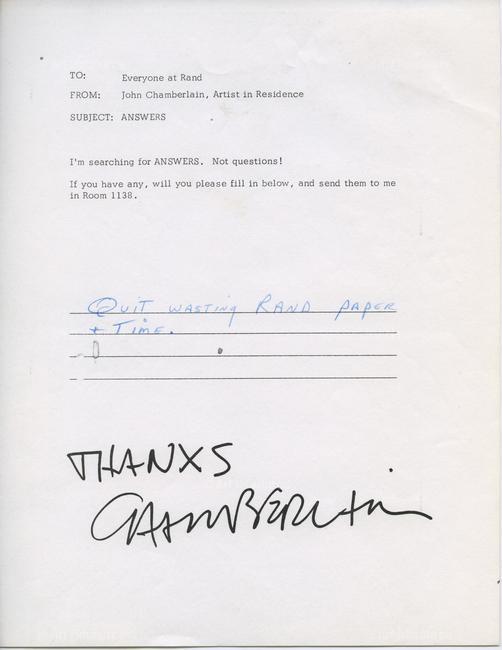 TO: Everyone at Rand
FROM: John Chamberlain, Artist in Residence
SUBJECT: ANSWERS
I'm searching for ANSWERS. Not questions!
If you have any, will you please fill in below, and send them to me
in Room 1138.
Quit wasting Rand paper
+ Time.
THANXS
CHAMBERLAIN